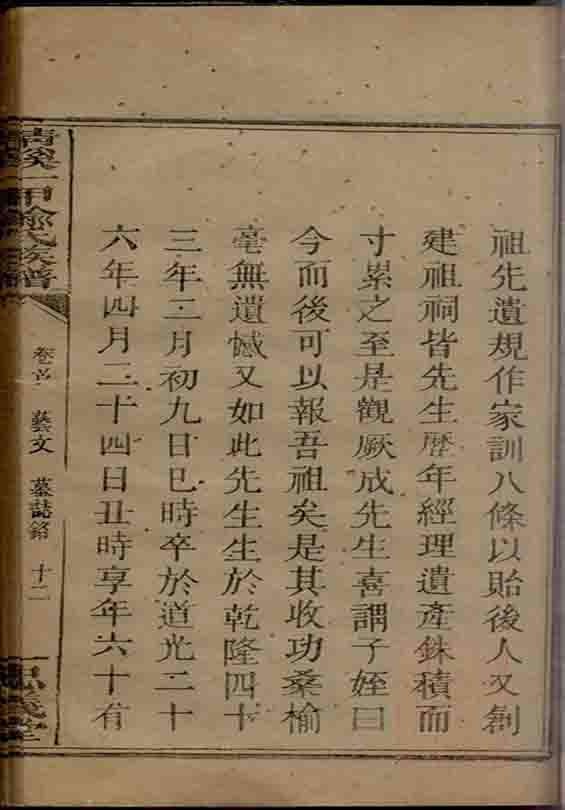 祖先遺規作家訓八條以貽後人又創
建祖祠皆先生歷年經理遺產銖積而
寸累之至是觀厥成先生喜謂子姪曰
今而後可以報吾祖矣是其收功桑榆
毫無遺憾又如此先生生於乾隆四十
三年二月初九日巳時卒於道光二十
六年四月二十四日丑時享年六十有
清溪一甲余氏族譜
卷首 藝文 墓誌銘 十二
忠義堂